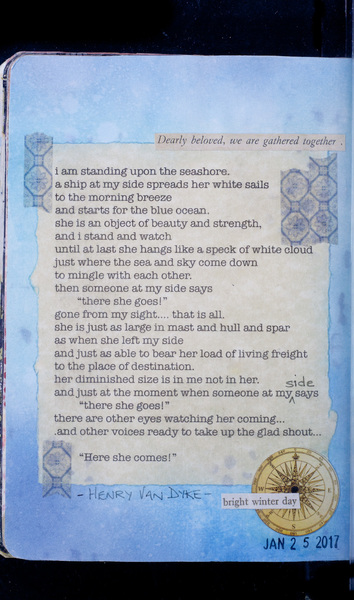 Dearly beloved, we are gathered together.
i am standing upon the seashore.
a ship at my side spreads her white sails
to the morning breeze
and starts for the blue ocean.
she is an object of beauty and strength,
and i stand and watch
until at last she hangs like a speck of white cloud
just where the sea and sky come down
to mingle with each other.
then someone at my side says
"there she goes!"
gone from my sight.... that is all.
she is just as large in mast and hull and spar
as when she left my side
and just as able to bear her load of living freight
to the place of destination.
her diminished size is in me not in her.
side
and just at the moment when someone at my ^ says
"there she goes!"
there are other eyes watching her coming...
.and other voices ready to take up the glad shout...
"Here she comes!"
- HENRY VAN DYKE -
bright winter day
JAN 25 2017